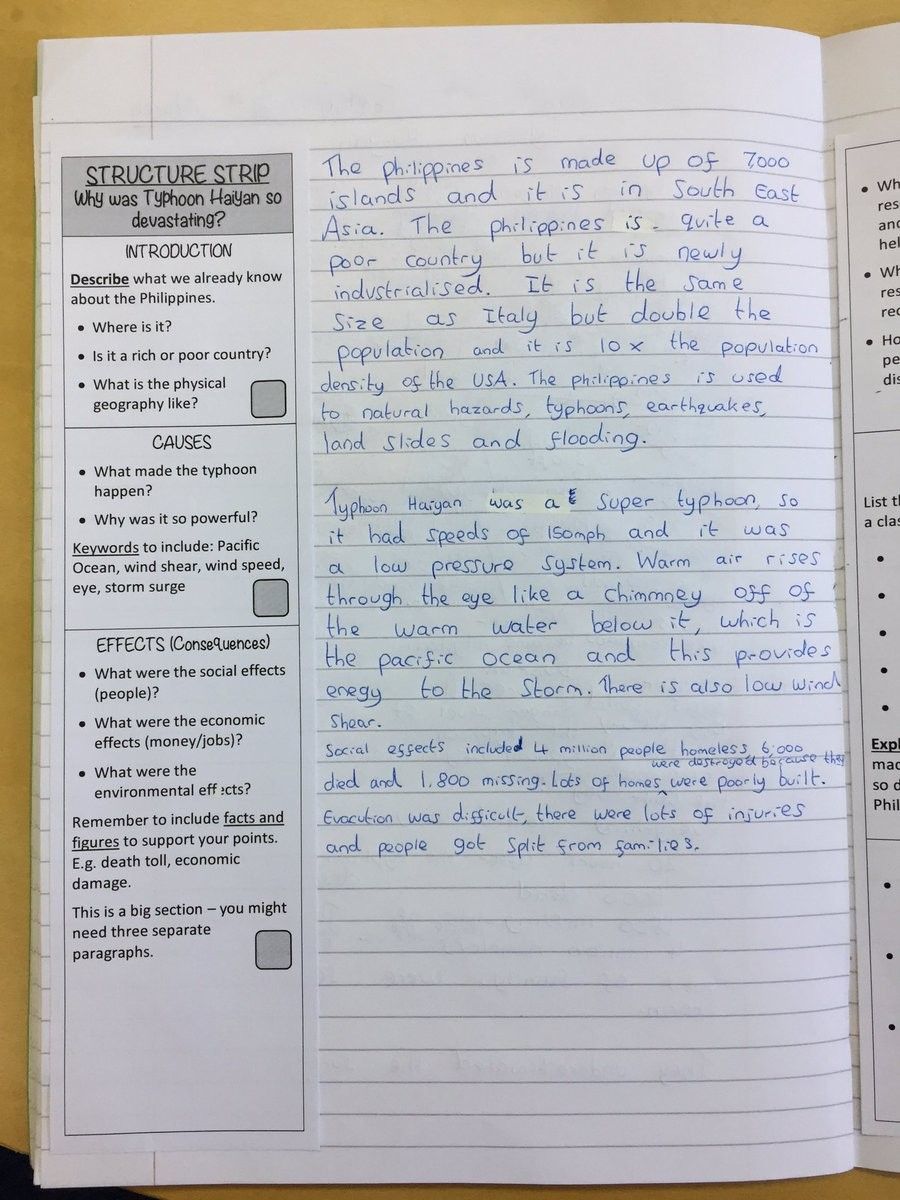 STRUCTURE STRIP
Why was Typhoon Haiyan so
devastating?
INTRODUCTION
Describe what we already know
about the Philippines.
• Where is it?
• Is it a rich or poor country?
• What is the physical
geography like?
CAUSES
• What made the typhoon
happen?
• Why was it so powerful?
Keywords to include: Pacific
Ocean, wind shear, wind speed,
eye, storm surge
EFFECTS (Consequences)
• What were the social effects
(people)?
• What were the economic
effects (money/jobs)?
• What were the
environmental effects?
Remember to include facts and
figures to support your points.
E.g. death toll, economic
damage.
This is a big section – you might
need three separate
paragraphs.
The philippines is made up of 7000
islands and it is in South East
Asia. The philippines is quite a
poor country but it is newly
indvstrialised. It is the same
size as Italy but double the
population and it is 10 x the population
density of the USA. The philippines is used
to natural hazards, typhoons, earthquakes,
land slides and flooding.
Typhoon Haiyan was a super typhoon, so
it had speeds of 150mph and it was
a low pressure system. Warm air rises
through the eye like a chimmney off of
the warm water below it, which is
the pacific ocean and this provides
enegy to the storm. There is also low wind
shear.
Social effects included 4 million people homeless, 6,000
were destroyed because they
died and 1,800 missing. Lots of homes ^ were poorly built.
Evacution was difficult, there were lots of injuries
and people got split from families.
• Wh
res
and
hel
• Wh
res
rec
• Ho
pe
dis
List th
a clas
Expl
mad
so d
Phil